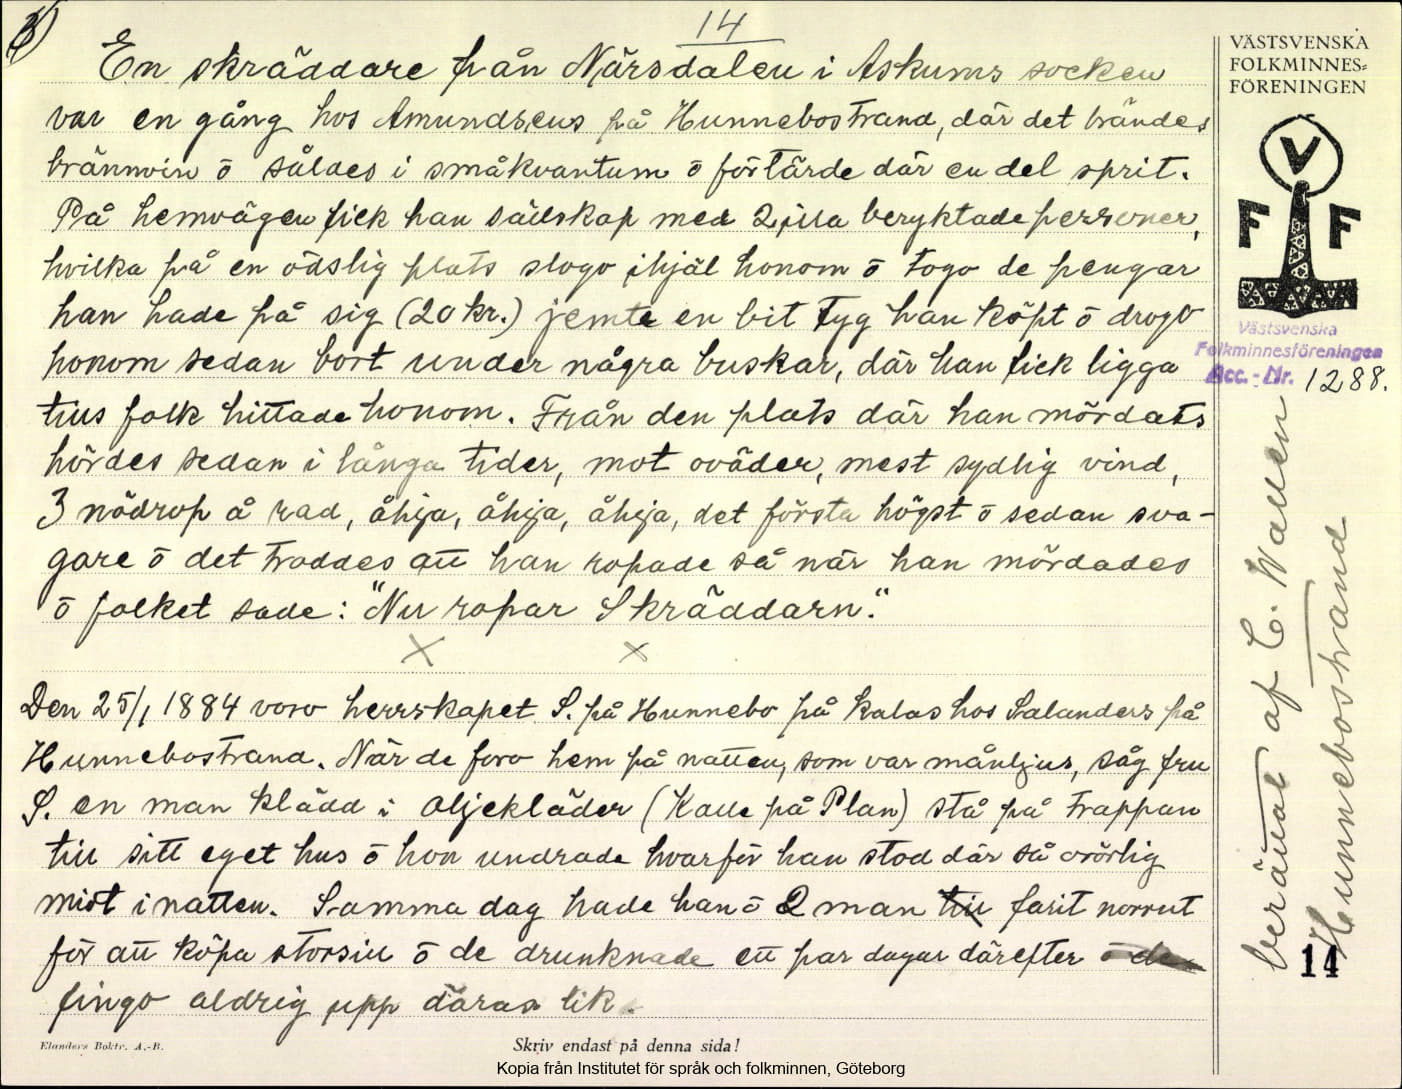 3)
14
En skräddare från Närsdalen i Askums socken
var en gång hos Amundsens på Hunnebostrand, där det brändes
brännvin ō såldes i småkvantum ō förtärde där en del sprit.
På hemvägen fick han sällskap med 2 illa beryktade personer,
hvilka på en ödslig plats slogo ihjäl honom ō togo de pengar
han hade på sig (20 kr.) jemte en bit tyg han köpt ō drogo
honom sedan bort under några buskar, där han fick ligga
tills folk hittade honom. Från den plats där han mördats
hördes sedan i långa tider, mot oväder, mest sydlig vind,
3 nödrop å rad, åhja, åhja, åhja, det första högst ō sedan sva-
gare ō det troddes att han ropade så när han mördades
ō folket sade: "Nu ropar Skräddarn".
x x
Den 25/1 1884 voro herrskapet S. på Hunnebo på kalas hos Salanders på
Hunnebostrand. När de foro hem på natten, som var månljus, såg fru
S. en man klädd i oljekläder (Kalle på Plan) stå på trappan
till sitt eget hus ō hon undrade hvarför han stod där så orörlig
midt i natten. Samma dag hade han ō 2 man till farit norrut
för att köpa storsill ō de drunknade ett par dagar därefter ō de
fingo aldrig upp däras lik.
VÄSTSVENSKA
FOLKMINNES=
FÖRENINGEN
V
F F
Västsvenska
Folkminnesföreningen
Acc.-Nr. 1288.
berättat af C. Wallen
Hunnebostrand
14
Elanders Boktr. A.-B.
Skriv endast på denna sida!
Kopia från Institutet för språk och folkminnen, Göteborg